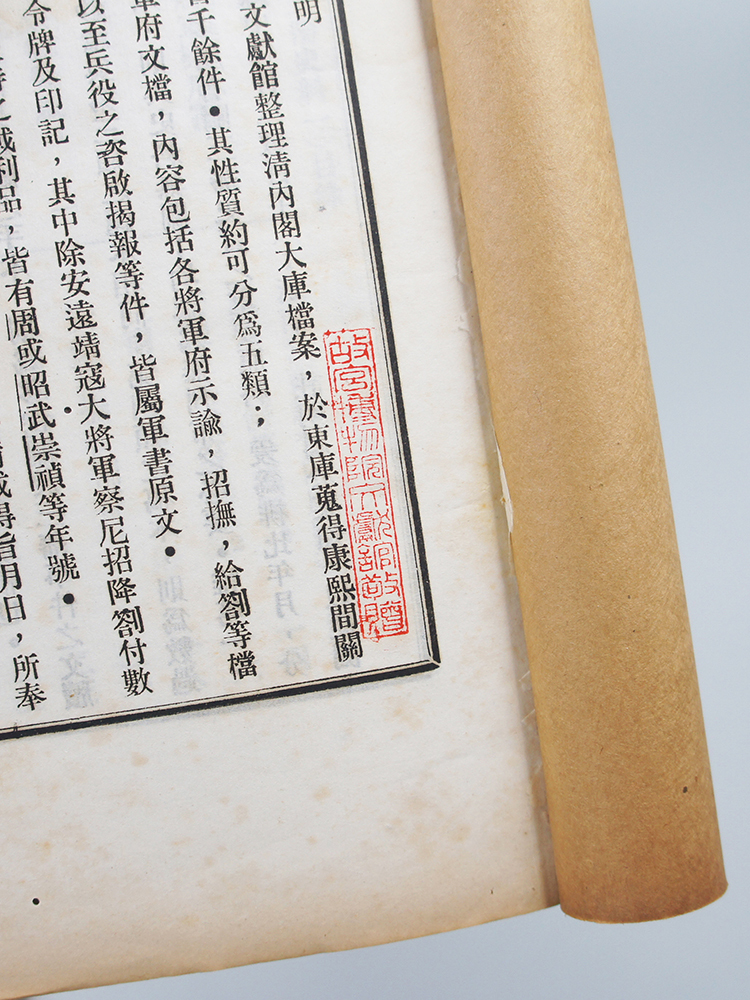 明
文獻館整理清內閣大庫檔案，於東庫蒐得康熙間關
千餘件・其性質約可分爲五類；
軍府文檔，內容包括各將軍府示諭，招撫，給劄等檔
以至兵役之咨啟揭報等件，皆屬軍書原文・
令牌及印記，其中除安遠靖寇大將軍察尼招降劄付數
之戰利品，皆有周或昭武崇禎等年號・
月日，所奉
故宮博物院文獻館敬贈